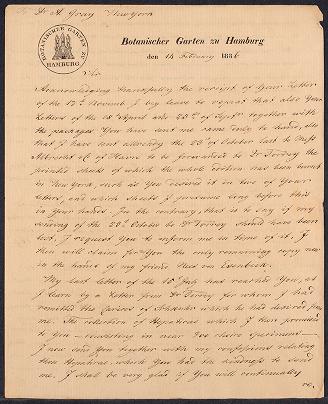 Dr A. Gray New York
BOTANISCHER GARTEN ZU HAMBURG
Botanischer Garten zu Hamburg
den 14 February 1836
Sir
Acknowledging thankfully the receipt of Your Letter
of the 17th Novemb. I beg leave to repeat that also Your
Letters of the 1st April and of Sept. together with
the packages You have sent me came duly to hand, also
that I have sent allready the 28th of October last to Messrs
Albrecht & C. of Havre to be forwarded to Dr Torrey the
printed sheets of which the whole edition has been burnt
in New York such as You receive it in two of Your
letters, and which sheets I presume long before this
in Your hands. In the contrary, that is to say if my
sending of the 28th October to Dr Torrey should have been
lost, I request You to inform me in terms of it. I
then will claim for You the only remaining copy now
in the hands of my friend Nees von Esenbeck.
My last letter of the 15 July has reached You, as
I learn by a Letter from Dr Torrey for whom I had
remitted the of which he had desired from
me. The collection of Hepaticae which I then promised
to You — consisting in near 200 choice specimens —
I now send You together with my confessions relating
those Hepaticae which You had the kindness to send
me. I shall be very glad if You will continually